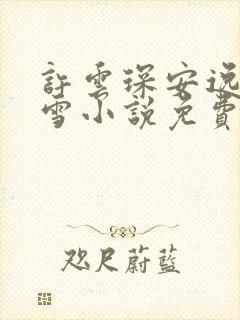 許雲深安逸
雪小說免費
咫尺蔚藍